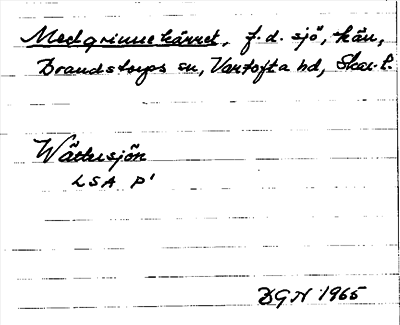 Medgrimekärret, f.d. sjö, kärr,
Brandstorps sn, Vartofta hd, Skar. l.
Vättersjön
LSA P'
DGN 1965